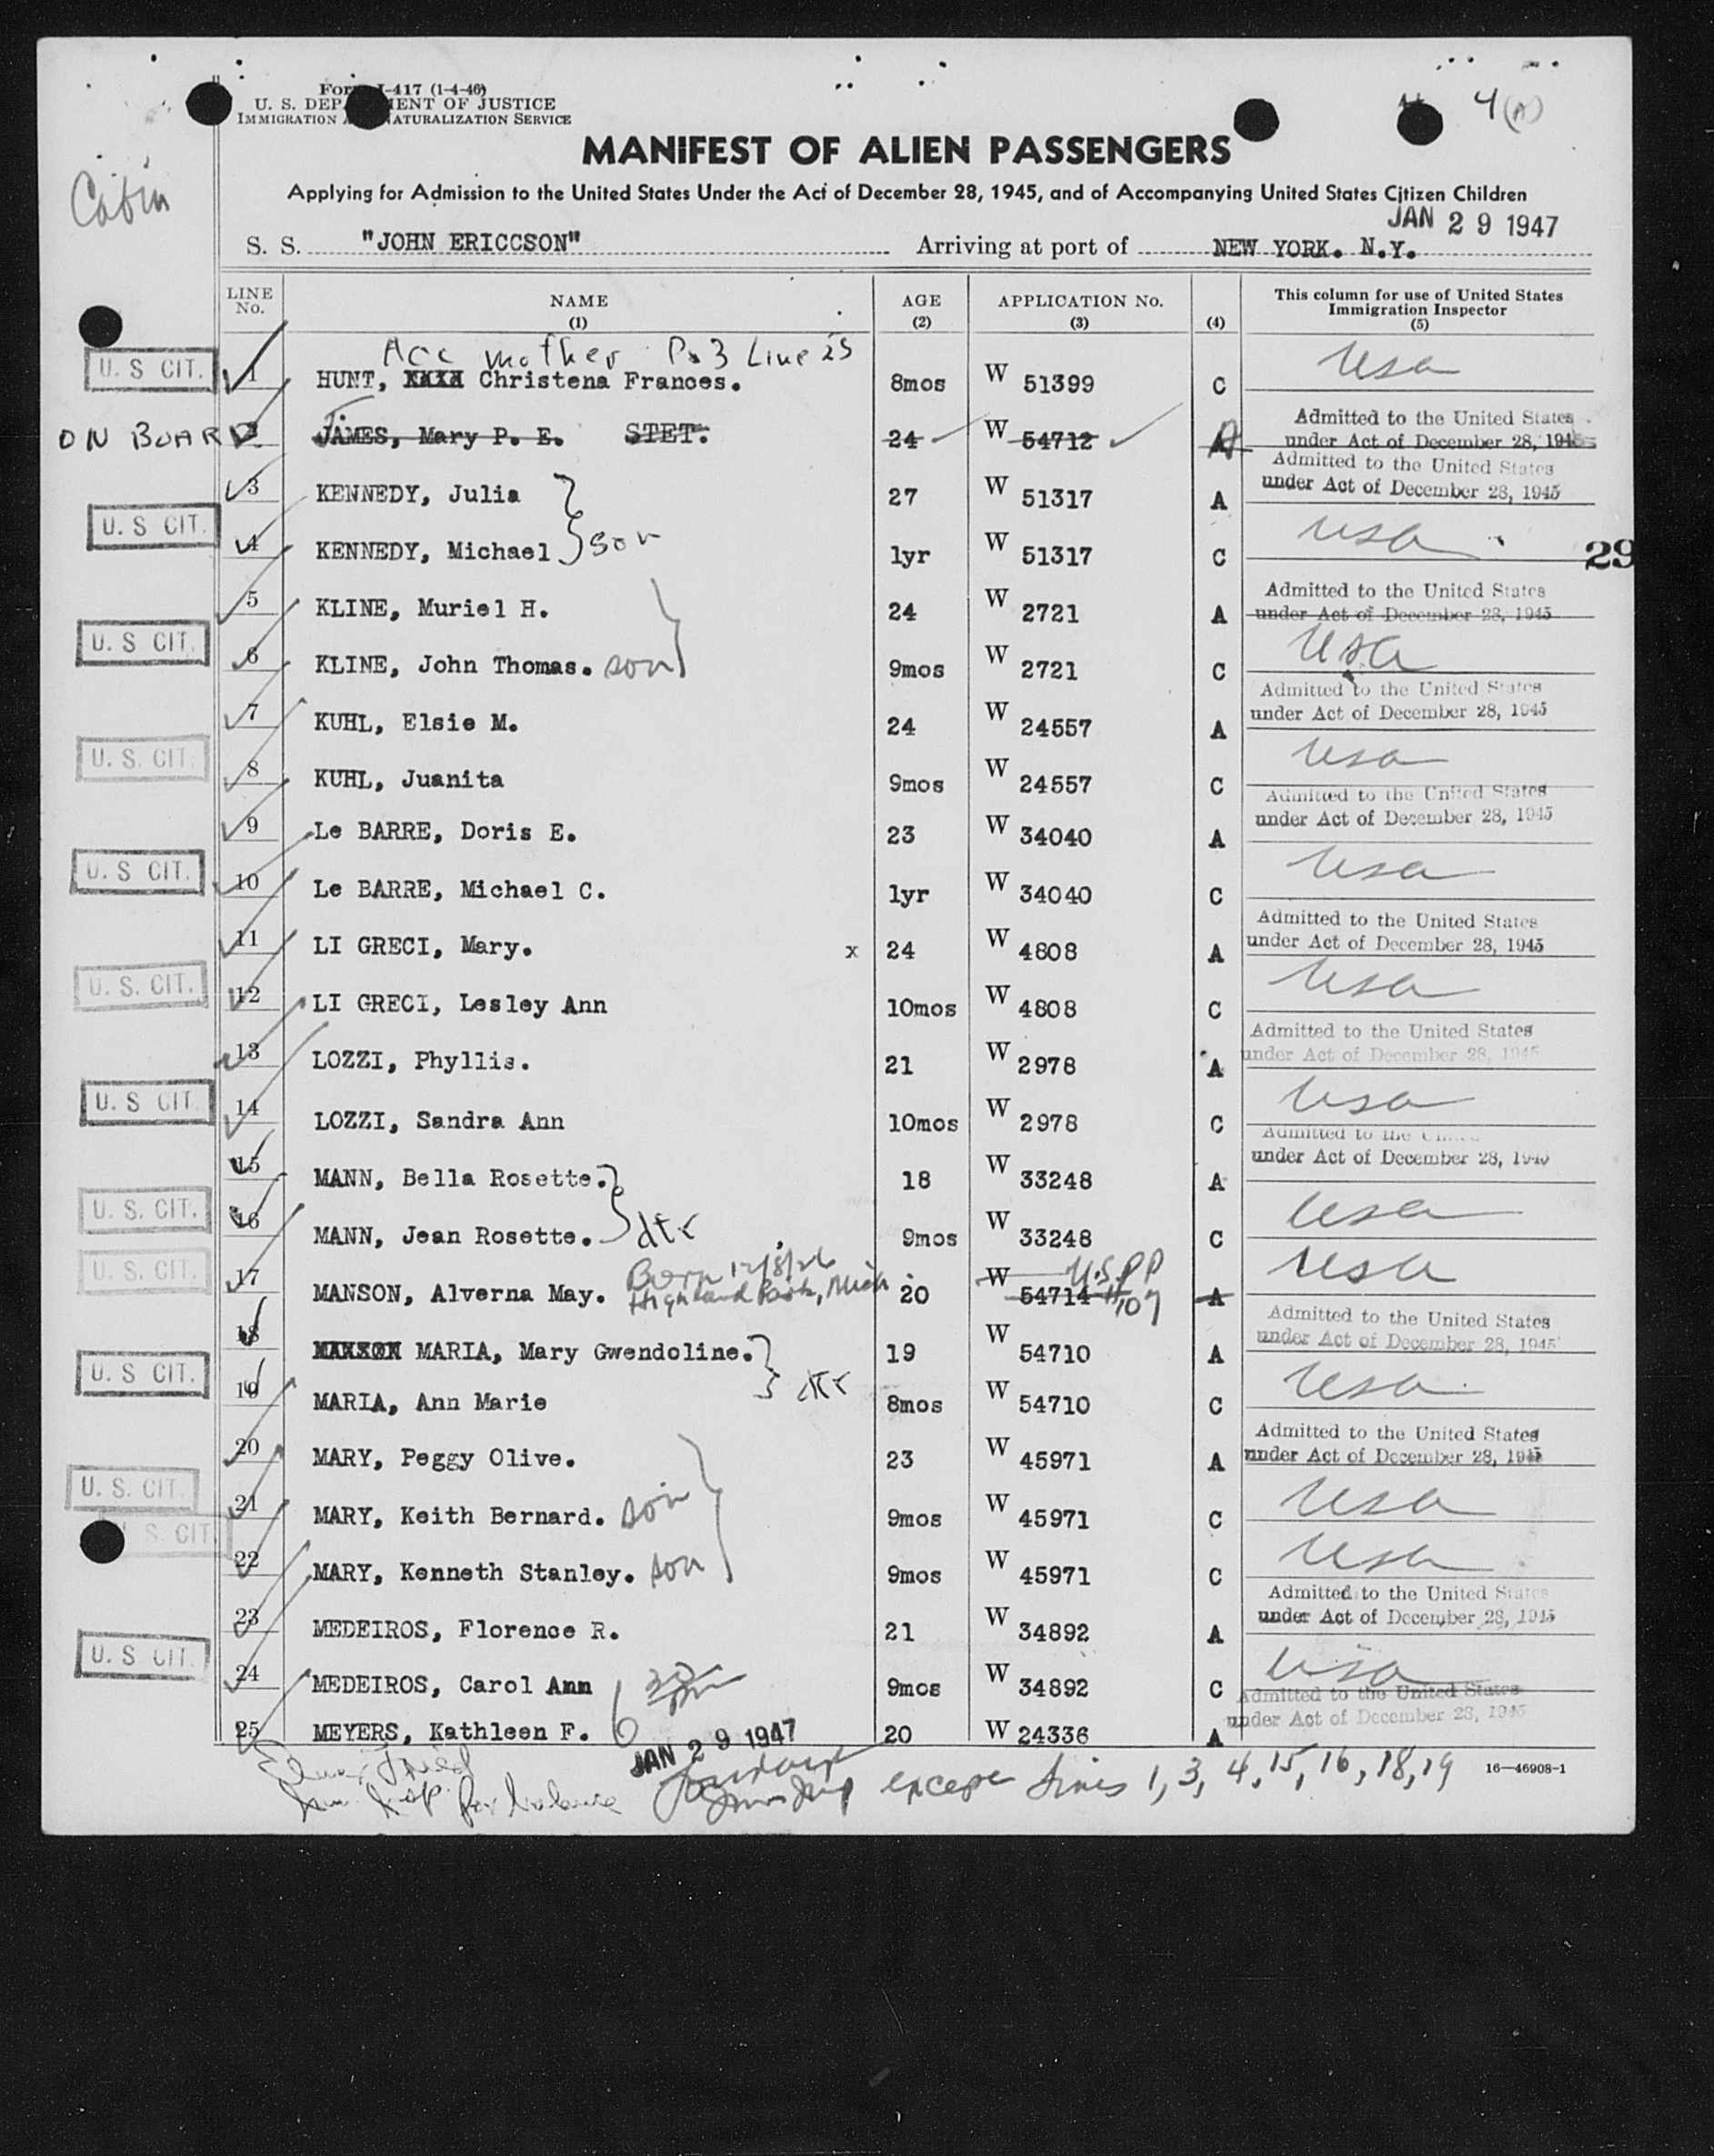 4 (A)
Form I-417 (1-4-46)
U. S. DEPARTMENT OF JUSTICE
IMMIGRATION AND NATURALIZATION SERVICE
Cabin
MANIFEST OF ALIEN PASSENGERS
Applying for Admission to the United States Under the Act of December 28, 1945, and of Accompanying United States Citizen Children
JAN 29 1947
S. S. "JOHN ERICCSON" Arriving at port of NEW YORK. N.Y.
LINE No. NAME (1) AGE (2) APPLICATION No. (3) (4) This column for use of United States Immigration Inspector (5)
Acc mother P. 3 Line 25
U. S CIT. 1 HUNT, Christena Frances. 8mos W 51399 C USA
ON BOARD 2 JAMES, Mary P. E. STET. 24 W 54712 A Admitted to the United States under Act of December 28, 1945
3 KENNEDY, Julia 27 W 51317 A Admitted to the United States under Act of December 28, 1945
U. S CIT. 4 KENNEDY, Michael son 1yr W 51317 C USA
29
5 KLINE, Muriel H. 24 W 2721 A Admitted to the United States under Act of December 28, 1945
U. S CIT. 6 KLINE, John Thomas. son 9mos W 2721 C USA
7 KUHL, Elsie M. 24 W 24557 A Admitted to the United States under Act of December 28, 1945
U. S. CIT. 8 KUHL, Juanita 9mos W 24557 C USA
9 Le BARRE, Doris E. 23 W 34040 A Admitted to the United States under Act of December 28, 1945
U. S CIT. 10 Le BARRE, Michael C. 1yr W 34040 C USA
11 LI GRECI, Mary. x 24 W 4808 A Admitted to the United States under Act of December 28, 1945
U. S. CIT. 12 LI GRECI, Lesley Ann 10mos W 4808 C USA
13 LOZZI, Phyllis. 21 W 2978 A Admitted to the United States under Act of December 28, 1945
U. S CIT. 14 LOZZI, Sandra Ann 10mos W 2978 C USA
15 MANN, Bella Rosette. 18 W 33248 A Admitted to the under Act of December 28, 1945
U. S. CIT. 16 MANN, Jean Rosette. dtr 9mos W 33248 C USA
U. S. CIT. 17 MANSON, Alverna May. Born 12/8/26 Highland Park, Mich 20 W 54714 U.S.PP #109 A USA
18 MARIA, Mary Gwendoline. 19 W 54710 A Admitted to the United States under Act of December 28, 1945
U. S CIT. 19 MARIA, Ann Marie dtr 8mos W 54710 C USA
20 MARY, Peggy Olive. 23 W 45971 A Admitted to the United States under Act of December 28, 1945
U. S. CIT. 21 MARY, Keith Bernard. son 9mos W 45971 C USA
U. S. CIT. 22 MARY, Kenneth Stanley. son 9mos W 45971 C USA
23 MEDEIROS, Florence R. 21 W 34892 A Admitted to the United States under Act of December 28, 1945
U. S CIT. 24 MEDEIROS, Carol Ann 9mos W 34892 C USA
25 MEYERS, Kathleen F. 20 W 24336 A Admitted to the United States under Act of December 28, 1945
JAN 29 1947
for balance
except lines 1, 3, 4, 15, 16, 18, 19
16—46908-1